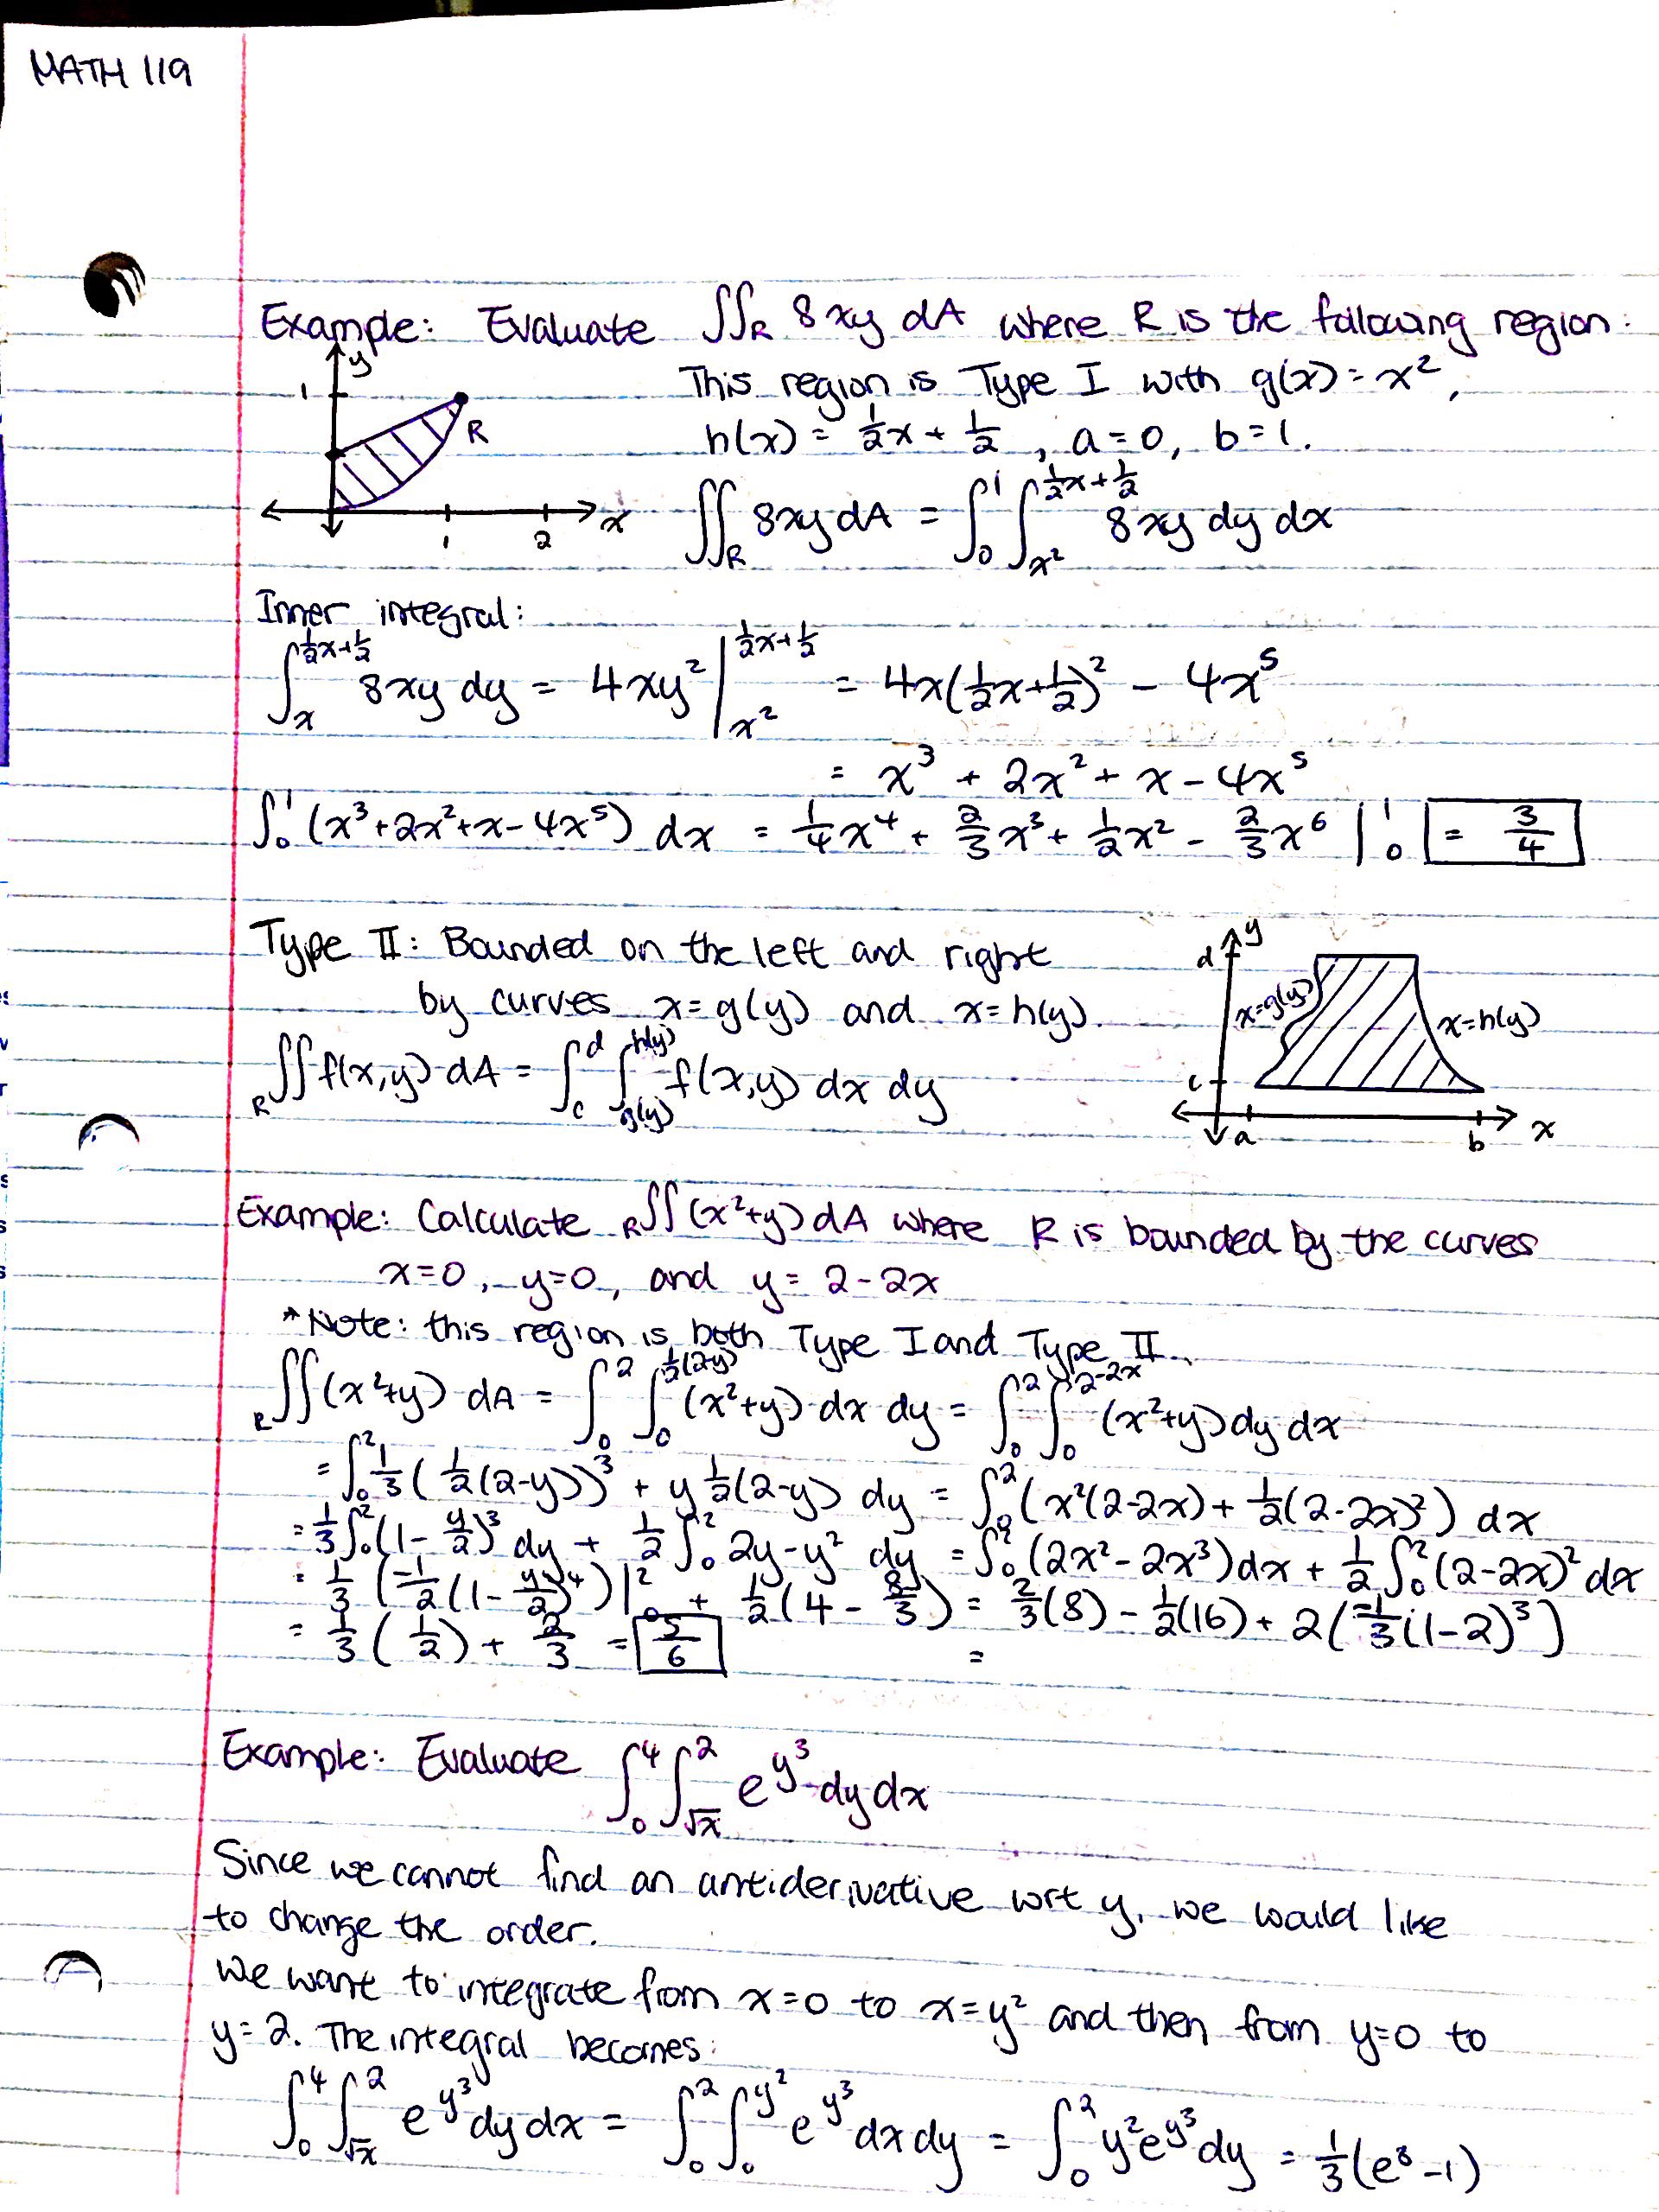 MATH 119
Example: Evaluate ∬_R 8xy dA where R is the following region:
y
1
R
1
2
x
This region is Type I with g(x) = x²,
h(x) = ½x + ½, a=0, b=1.
∬_R 8xy dA = ∫_0^1 ∫_{x²}^{½x+½} 8xy dy dx
Inner integral:
∫_x^{½x+½} 8xy dy = 4xy² |_{x²}^{½x+½} = 4x(½x+½)² - 4x⁵
= x³ + 2x² + x - 4x⁵
∫_0^1 (x³+2x²+x-4x⁵) dx = ¼x⁴ + ⅔x³ + ½x² - ⅔x⁶ |_0^1 = 3/4
Type II: Bounded on the left and right
by curves x=g(y) and x=h(y).
_R∬ f(x,y) dA = ∫_c^d ∫_{g(y)}^{h(y)} f(x,y) dx dy
y
d
x=g(y)
x=h(y)
c
a
b
x
Example: Calculate _R∬ (x²+y) dA where R is bounded by the curves
x=0, y=0, and y= 2-2x
*Note: this region is both Type I and Type II.
_R∬ (x²+y) dA = ∫_0^2 ∫_0^{½(2-y)} (x²+y) dx dy = ∫_0^2 ∫_0^{2-2x} (x²+y) dy dx
= ∫_0^2 ⅓(½(2-y))³ + y ½(2-y) dy = ∫_0^2 (x²(2-2x) + ½(2-2x)²) dx
= ⅓∫_0^2 (1 - y/2)³ dy + ½∫_0^2 2y-y² dy = ∫_0^2 (2x²-2x³) dx + ½∫_0^2 (2-2x)² dx
= ⅓ (-½(1 - y/2)⁴)|_0^2 + ½(4 - 8/3) = ⅔(8) - ½(16) + 2(-⅓(1-2)³)
= ⅓(½) + ⅔ = 5/6 =
Example: Evaluate ∫_0^4 ∫_{√x}^2 e^{y³} dy dx
Since we cannot find an antiderivative wrt y, we would like
to change the order.
We want to integrate from x=0 to x=y² and then from y=0 to
y=2. The integral becomes:
∫_0^4 ∫_{√x}^2 e^{y³} dy dx = ∫_0^2 ∫_0^{y²} e^{y³} dx dy = ∫_0^2 y²e^{y³} dy = ⅓(e⁸-1)